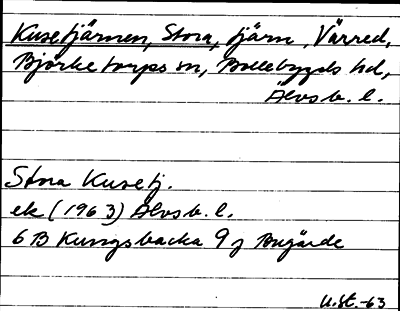 Kusetjärnen, Stora, tjärn, Värred,
Björketorps sn, Bollebygds hd,
Älvsb. l.
Stora Kusetj.
ek (1963) Älvsb. l.
6 B Kungsbacka 9 j Bugärde
U.St.-63